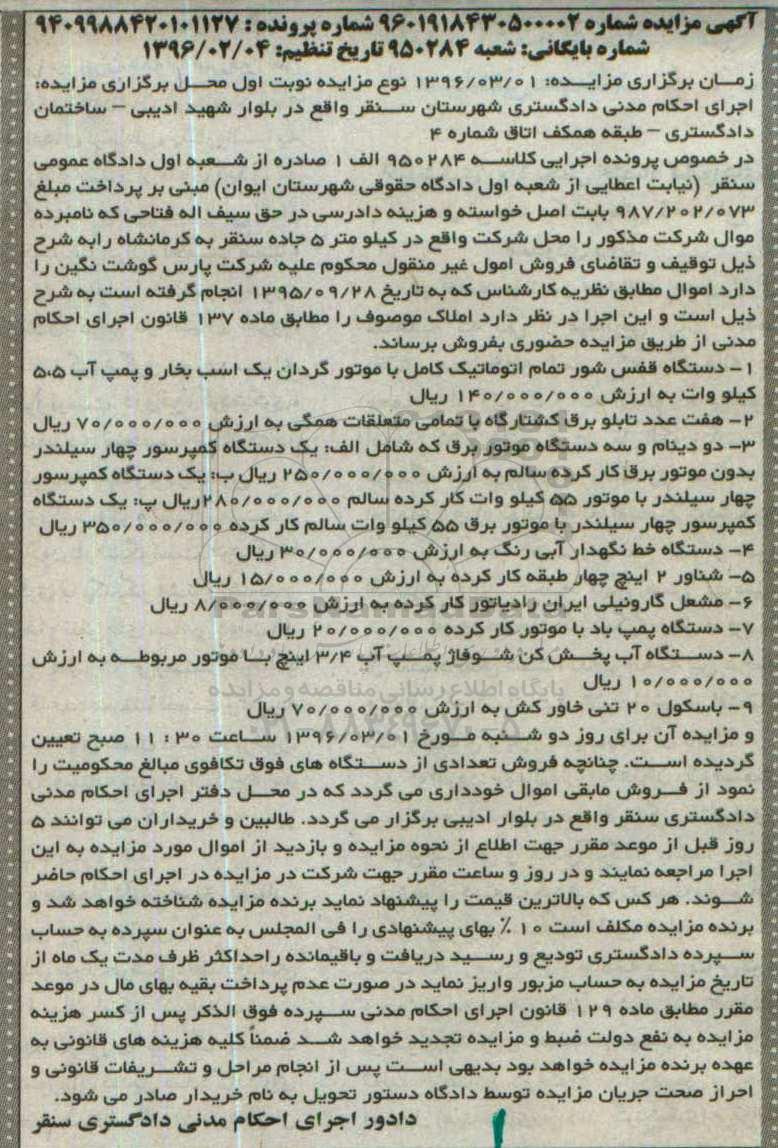 آگهی مزایده شماره ۹۶۰۱۹۱۸۴۳۰۵۰۰۰۰۲ شماره پرونده : ۹۴۰۹۹۸۸۴۲۰۱۰۱۱۲۷
شماره بایگانی: شعبه ۹۵۰۲۸۴ تاریخ تنظیم: ۱۳۹۶/۰۲/۰۴
زمان برگزاری مزایده: ۱۳۹۶/۰۳/۰۱ نوع مزایده نوبت اول محل برگزاری مزایده:
اجرای احکام مدنی دادگستری شهرستان سنقر واقع در بلوار شهید ادیبی – ساختمان
دادگستری – طبقه همکف اتاق شماره ۴
در خصوص پرونده اجرایی کلاسه ۹۵۰۲۸۴ الف ۱ صادره از شعبه اول دادگاه عمومی
سنقر (نیابت اعطایی از شعبه اول دادگاه حقوقی شهرستان ایوان) مبنی بر پرداخت مبلغ
۹۸۷/۲۰۲/۰۷۳ بابت اصل خواسته و هزینه دادرسی در حق سیف اله فتاحی که نامبرده
موال شرکت مذکور را محل شرکت واقع در کیلو متر ۵ جاده سنقر به کرمانشاه رابه شرح
ذیل توقیف و تقاضای فروش امول غیر منقول محکوم علیه شرکت پارس گوشت نگین را
دارد اموال مطابق نظریه کارشناس که به تاریخ ۱۳۹۵/۰۹/۲۸ انجام گرفته است به شرح
ذیل است و این اجرا در نظر دارد املاک موصوف را مطابق ماده ۱۳۷ قانون اجرای احکام
مدنی از طریق مزایده حضوری بفروش برساند.
۱– دستگاه قفس شور تمام اتوماتیک کامل با موتور گردان یک اسب بخار و پمپ آب ۵،۵
کیلو وات به ارزش ۱۴۰/۰۰۰/۰۰۰ ریال
۲– هفت عدد تابلو برق کشتارگاه با تمامی متعلقات همگی به ارزش ۷۰/۰۰۰/۰۰۰ ریال
۳– دو دینام و سه دستگاه موتور برق که شامل الف: یک دستگاه کمپرسور چهار سیلندر
بدون موتور برق کار کرده سالم به ارزش ۲۵۰/۰۰۰/۰۰۰ ریال ب: یک دستگاه کمپرسور
چهار سیلندر با موتور ۵۵ کیلو وات کار کرده سالم ۲۸۰/۰۰۰/۰۰۰ریال پ: یک دستگاه
کمپرسور چهار سیلندر با موتور برق ۵۵ کیلو وات سالم کار کرده ۳۵۰/۰۰۰/۰۰۰ ریال
۴– دستگاه خط نگهدار آبی رنگ به ارزش ۳۰/۰۰۰/۰۰۰ ریال
۵– شناور ۲ اینچ چهار طبقه کار کرده به ارزش ۱۵/۰۰۰/۰۰۰ ریال
۶– مشعل گازوئیلی ایران رادیاتور کار کرده به ارزش ۸/۰۰۰/۰۰۰ ریال
۷– دستگاه پمپ باد با موتور کار کرده ۲۰/۰۰۰/۰۰۰ ریال
۸– دستگاه آب پخش کن شوفاژ پمپ آب ۳/۴ اینچ با موتور مربوطه به ارزش
۱۰/۰۰۰/۰۰۰ ریال
پایگاه اطلاع رسانی مناقصه و مزایده
۹– باسکول ۲۰ تنی خاور کش به ارزش ۷۰/۰۰۰/۰۰۰ ریال
و مزایده آن برای روز دو شنبه مورخ ۱۳۹۶/۰۳/۰۱ ساعت ۳۰ : ۱۱ صبح تعیین
گردیده است. چنانچه فروش تعدادی از دستگاه های فوق تکافوی مبالغ محکومیت را
نمود از فروش مابقی اموال خودداری می گردد که در محل دفتر اجرای احکام مدنی
دادگستری سنقر واقع در بلوار ادیبی برگزار می گردد. طالبین و خریداران می توانند ۵
روز قبل از موعد مقرر جهت اطلاع از نحوه مزایده و بازدید از اموال مورد مزایده به این
اجرا مراجعه نمایند و در روز و ساعت مقرر جهت شرکت در مزایده در اجرای احکام حاضر
شوند. هر کس که بالاترین قیمت را پیشنهاد نماید برنده مزایده شناخته خواهد شد و
برنده مزایده مکلف است ۱۰ ٪ بهای پیشنهادی را فی المجلس به عنوان سپرده به حساب
سپرده دادگستری تودیع و رسید دریافت و باقیمانده راحداکثر ظرف مدت یک ماه از
تاریخ مزایده به حساب مزبور واریز نماید در صورت عدم پرداخت بقیه بهای مال در موعد
مقرر مطابق ماده ۱۲۹ قانون اجرای احکام مدنی سپرده فوق الذکر پس از کسر هزینه
مزایده به نفع دولت ضبط و مزایده تجدید خواهد شد ضمناً کلیه هزینه های قانونی به
عهده برنده مزایده خواهد بود بدیهی است پس از انجام مراحل و تشریفات قانونی و
احراز صحت جریان مزایده توسط دادگاه دستور تحویل به نام خریدار صادر می شود.
دادور اجرای احکام مدنی دادگستری سنقر